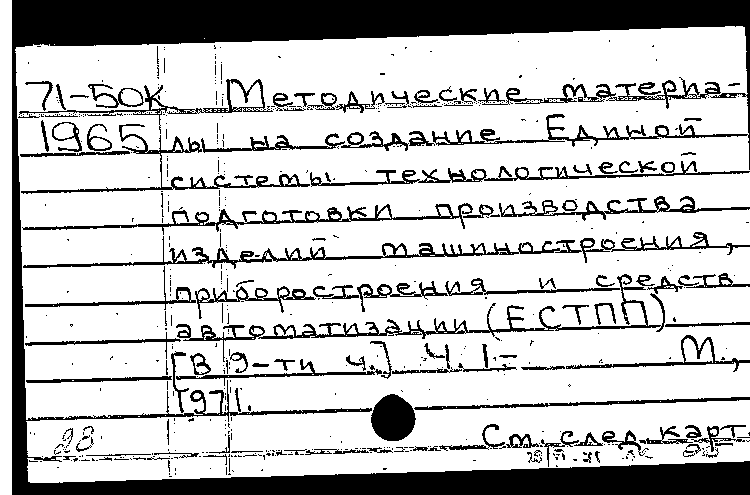 71-50к Методические материа-
1965 лы на создание Единой
системы технологической
подготовки производства
изделий машиностроения,
приборостроения и средств
автоматизации (ЕСТПП).
[В 9-ти ч.] Ч. 1- М.,
1971.
23 См. след. карт.